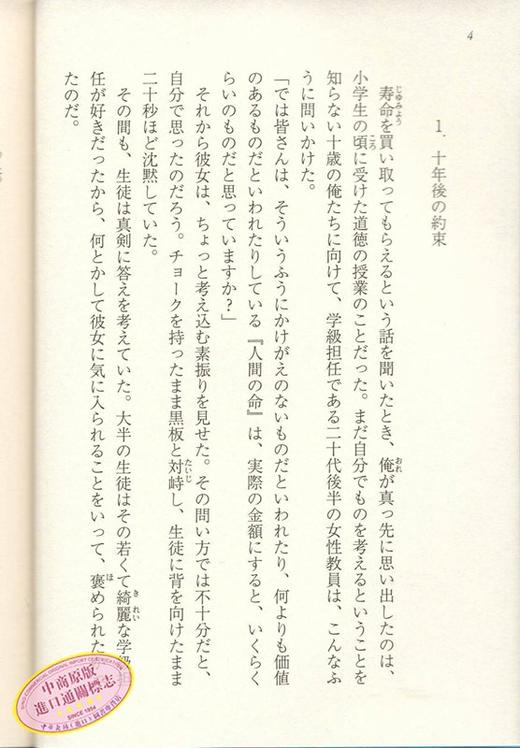 4
1. 十年後の約束
寿命を買い取ってもらえるという話を聞いたとき、俺が真っ先に思い出したのは、
小学生の頃に受けた道徳の授業のことだった。まだ自分でものを考えるということを
知らない十歳の俺たちに向けて、学級担任である二十代後半の女性教員は、こんなふ
うに問いかけた。
「では皆さんは、そういうふうにかけがえのないものだといわれたり、何よりも価値
のあるものだといわれたりしている『人間の命』は、実際の金額にすると、いくらく
らいのものだと思っていますか?」
それから彼女は、ちょっと考え込む素振りを見せた。その問い方では不十分だと、
自分で思ったのだろう。チョークを持ったまま黒板と対峙し、生徒に背を向けたまま
二十秒ほど沈黙していた。
その間も、生徒は真剣に答えを考えていた。大半の生徒はその若くて綺麗な学
任が好きだったから、何とかして彼女に気に入られることをいって、褒められた
たのだ。
じゅみょう
おれ
ころ
たいじ
きれい
ほ
中商原版
進口通關標志
SINCE 1994